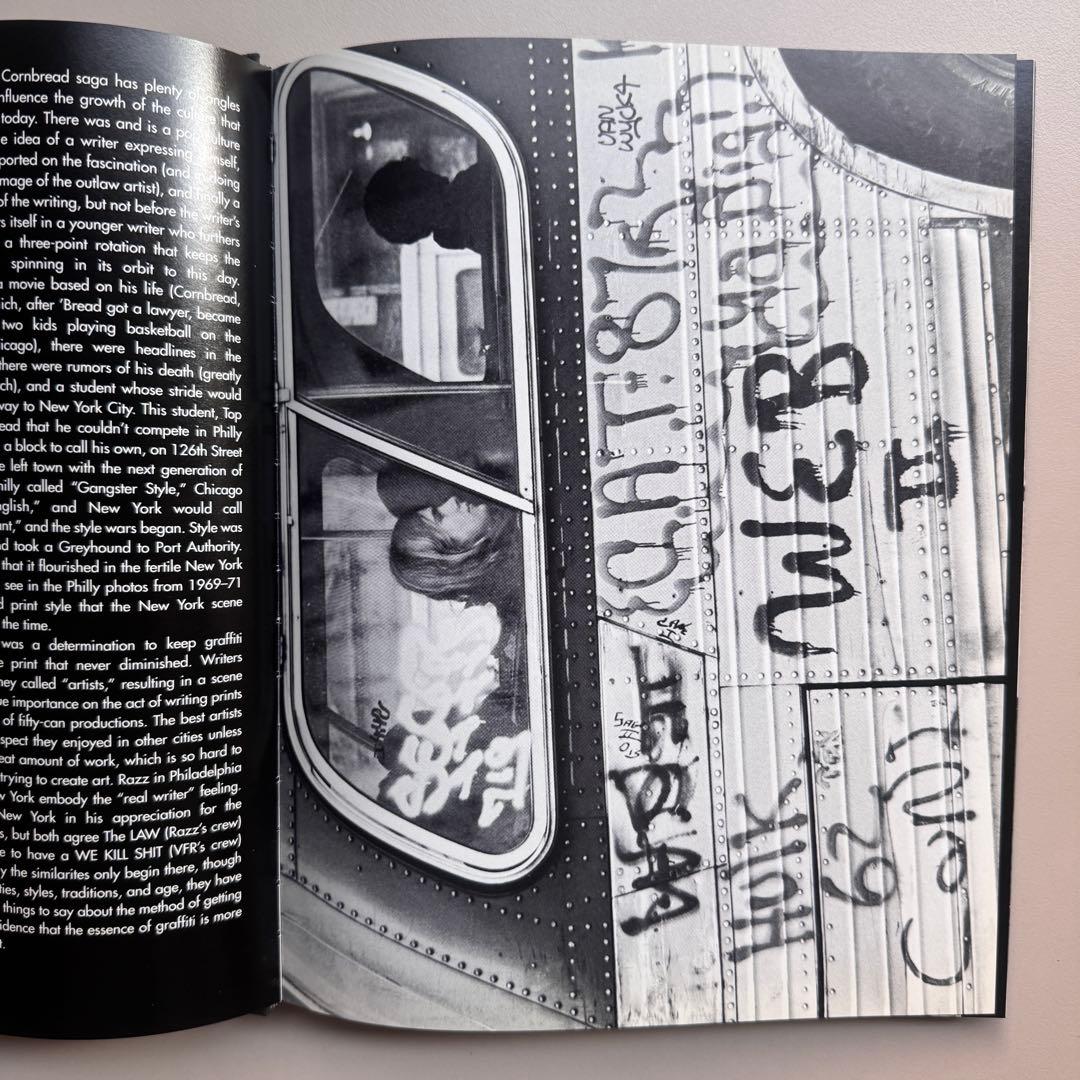 Cornbread saga has plenty of angles
nfluence the growth of the culture that
today. There was and is a pop culture
e idea of a writer expressing himself,
ported on the fascination (and
mage of the outlaw artist), and finally a
of the writing, but not before the writer's
s itself in a younger writer who furthers
a three-point rotation that keeps the
spinning in its orbit to this day.
a movie based on his life (Cornbread,
ich, after 'Bread got a lawyer, became
two kids playing basketball on the
icago), there were headlines in the
there were rumors of his death (greatly
ch), and a student whose stride would
way to New York City. This student, Top
ead that he couldn't compete in Philly
a block to call his own, on 126th Street
e left town with the next generation of
hilly called "Gangster Style," Chicago
nglish," and New York would call
nt," and the style wars began. Style was
d took a Greyhound to Port Authority.
that it flourished in the fertile New York
see in the Philly photos from 1969–71
d print style that the New York scene
the time.
was a determination to keep graffiti
e print that never diminished. Writers
hey called "artists," resulting in a scene
ue importance on the act of writing prints
of fifty-can productions. The best artists
spect they enjoyed in other cities unless
eat amount of work, which is so hard to
trying to create art. Razz in Philadelphia
w York embody the "real writer" feeling.
New York in his appreciation for the
s, but both agree The LAW (Razz's crew)
e to have a WE KILL SHIT (VFR's crew)
y the similarites only begin there, though
ties, styles, traditions, and age, they have
things to say about the method of getting
idence that the essence of graffiti is more
t.
VAN
WYCK4
WEB
II
62